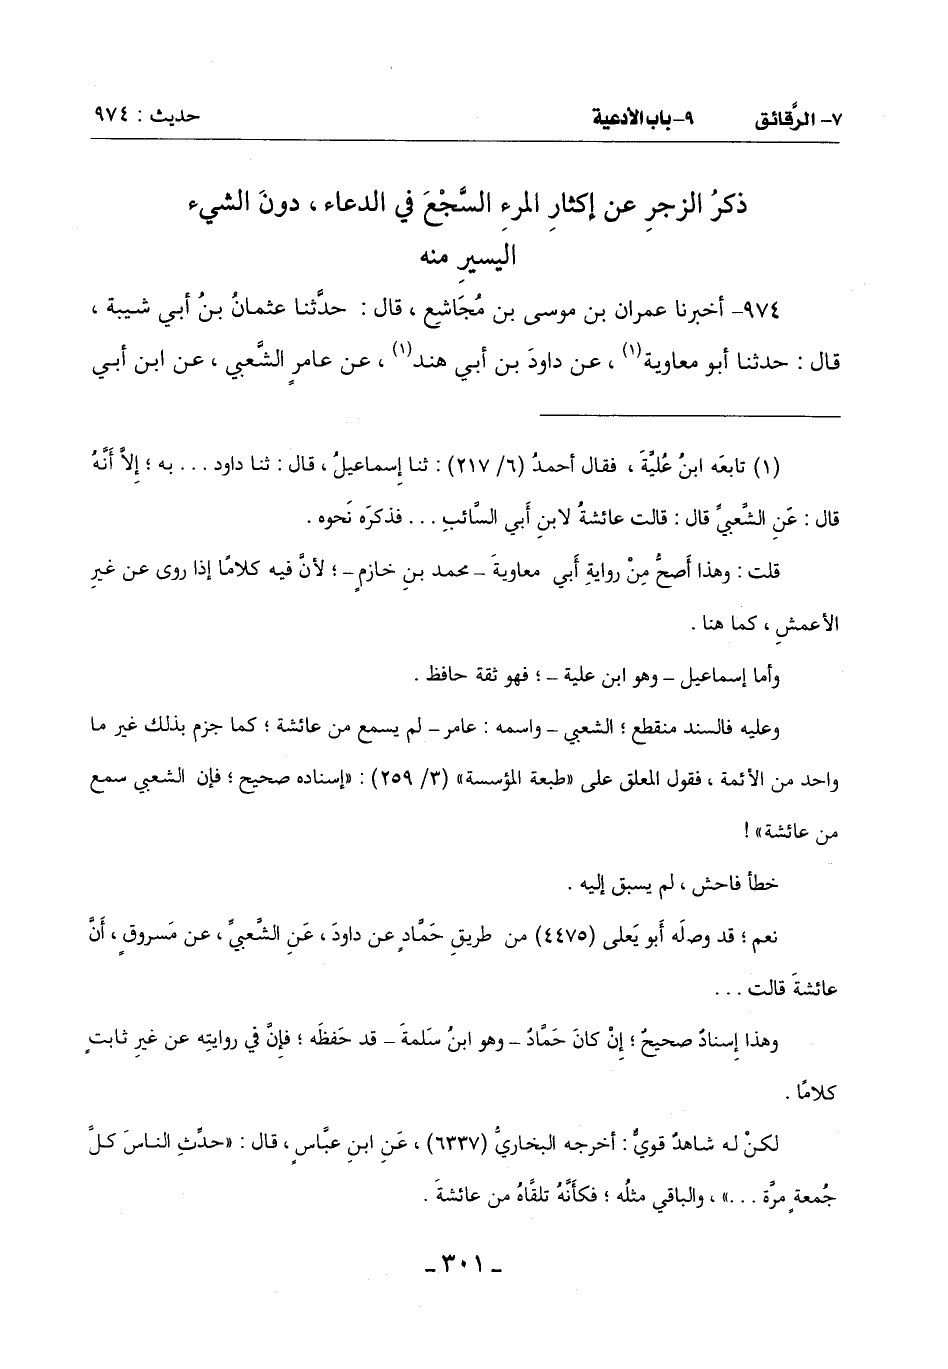 ٧- الرَّقائق ٩-باب الأدعية حديث : ٩٧٤
ذكرُ الزجرِ عن إكثارِ المرءِ السَّجْعَ في الدعاء ، دونَ الشيء
اليسيرِ منه
٩٧٤- أخبرنا عمران بن موسى بن مُجَاشعٍ ، قال : حدَّثنا عثمانُ بنُ أبي شيبة ،
قال : حدثنا أبو معاوية(١) ، عن داودَ بن أبي هند(١) ، عن عامرٍ الشَّعبي ، عن ابن أبي
(١) تابعَه ابنُ عُليَّةَ ، فقال أحمدُ (٦/ ٢١٧) : ثنا إسماعيلُ ، قال : ثنا داود ... به ؛ إلاَّ أَنَّهُ
قال : عَنِ الشَّعبيِّ قال : قالت عائشةُ لابنِ أبي السَّائبِ ... فذكرَه نَحوه .
قلت : وهذا أَصحُّ مِنْ روايةِ أَبي معاويةَ _ محمد بنِ خازمٍ _ ؛ لأنَّ فيه كلامًا إذا روى عن غيرِ
الأعمشِ ، كما هنا .
وأما إسماعيل _ وهو ابن علية _ ؛ فهو ثقة حافظ .
وعليه فالسند منقطع ؛ الشعبي _ واسمه : عامر _ لم يسمع من عائشة ؛ كما جزم بذلك غير ما
واحد من الأئمة ، فقول المعلق على «طبعة المؤسسة» (٣/ ٢٥٩) : «إسناده صحيح ؛ فإن الشعبي سمع
من عائشة» !
خطأ فاحش ، لم يسبق إليه .
نعم ؛ قد وصلَه أَبو يَعلى (٤٤٧٥) من طريقِ حَمَّادٍ عن داودَ ، عَنِ الشَّعبيِّ ، عن مَسروقٍ ، أَنَّ
عائشةَ قالت ...
وهذا إِسنادٌ صحيحٌ ؛ إِنْ كانَ حَمَّادٌ _ وهو ابنُ سَلمةَ _ قد حَفظَه ؛ فإنَّ في روايتِه عن غيرِ ثابتٍ
كلامًا .
لكنْ له شاهدٌ قويٌّ : أخرجه البخاريُّ (٦٣٣٧) ، عَنِ ابنِ عبَّاسٍ ، قال : «حدِّثِ الناسَ كلَّ
جُمعةٍ مرَّة ...» ، والباقي مثلُه ؛ فكأنَّهُ تلقَّاهُ من عائشةَ .
_ ٣٠١ _